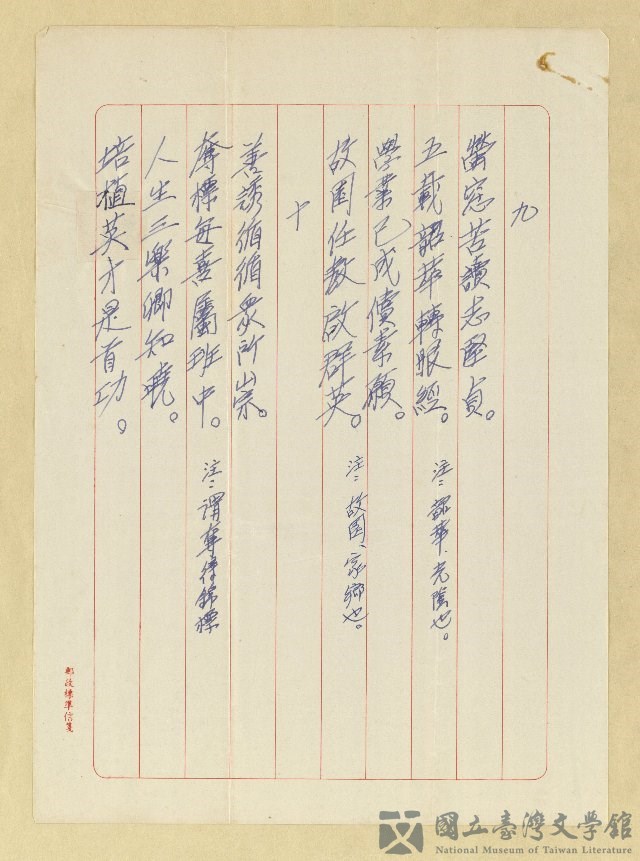 九
螢窓苦讀志堅貞。
五載韶華轉眼經。 注:韶華、光陰也。
學業已成償素願。
故園任教啟群英。 注:故園、家鄉也。
十
善誘循循衆所崇。
奪標每喜屬班中。 注:謂奪得錦標
人生三樂卿知曉。
培植英才是首功。
郵政標準信箋
國立臺灣文學館
National Museum of Taiwan Literature